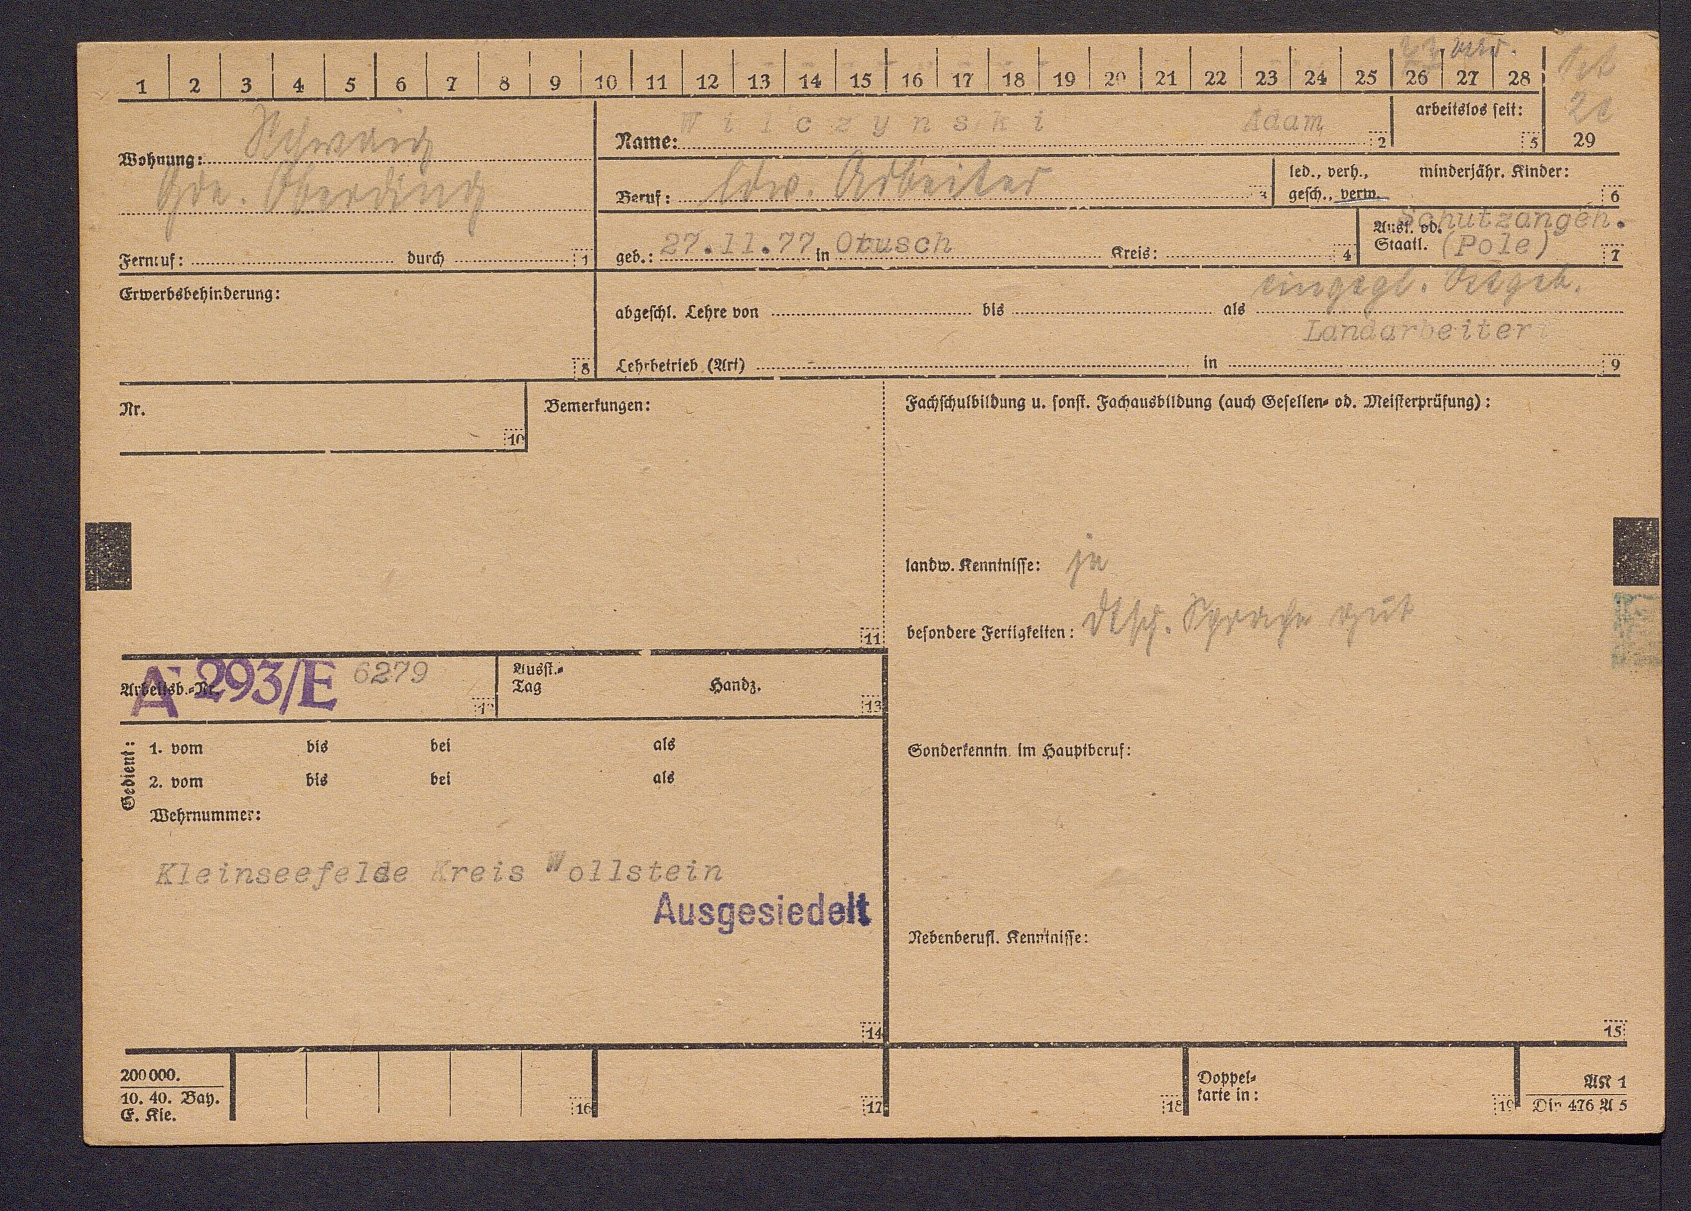 1 2 3 4 5 6 7 8 9 10 11 12 13 14 15 16 17 18 19 20 21 22 23 24 25 26 27 28
29
Wohnung: Schwaig
Gde. Oberding
Fernruf: durch 1
Name: Wilczynski Adam 2
arbeitslos seit: 5
Beruf: ldw. Arbeiter 3
led., verh., gesch., verw.
minderjähr. Kinder: 6
geb.: 27.11.77 in Otusch Kreis: 4
Ausl. od. Staatl. Schutzangeh. (Pole) 7
eingegl. Ostgeb.
Erwerbsbehinderung: 8
abgeschl. Lehre von bis als
Landarbeiter
Lehrbetrieb (Art) in 9
Nr. 10
Bemerkungen: 11
Fachschulbildung u. sonst. Fachausbildung (auch Gesellen- od. Meisterprüfung):
landw. Kenntnisse: ja
besondere Fertigkeiten: dtsch. Sprache gut
Arbeitsb.-Nr. A 293/E 6279 12
Ausst.-Tag Handz. 13
Gedient:
1. vom bis bei als
2. vom bis bei als
Wehrnummer:
Kleinseefelde Kreis Wollstein
Ausgesiedelt
14
Sonderkenntn. im Hauptberuf:
Nebenberufl. Kenntnisse:
15
200 000.
10. 40. Bay.
E. Kie.
16 17 18
Doppelkarte in: 19
AK 1
Din 476 A 5